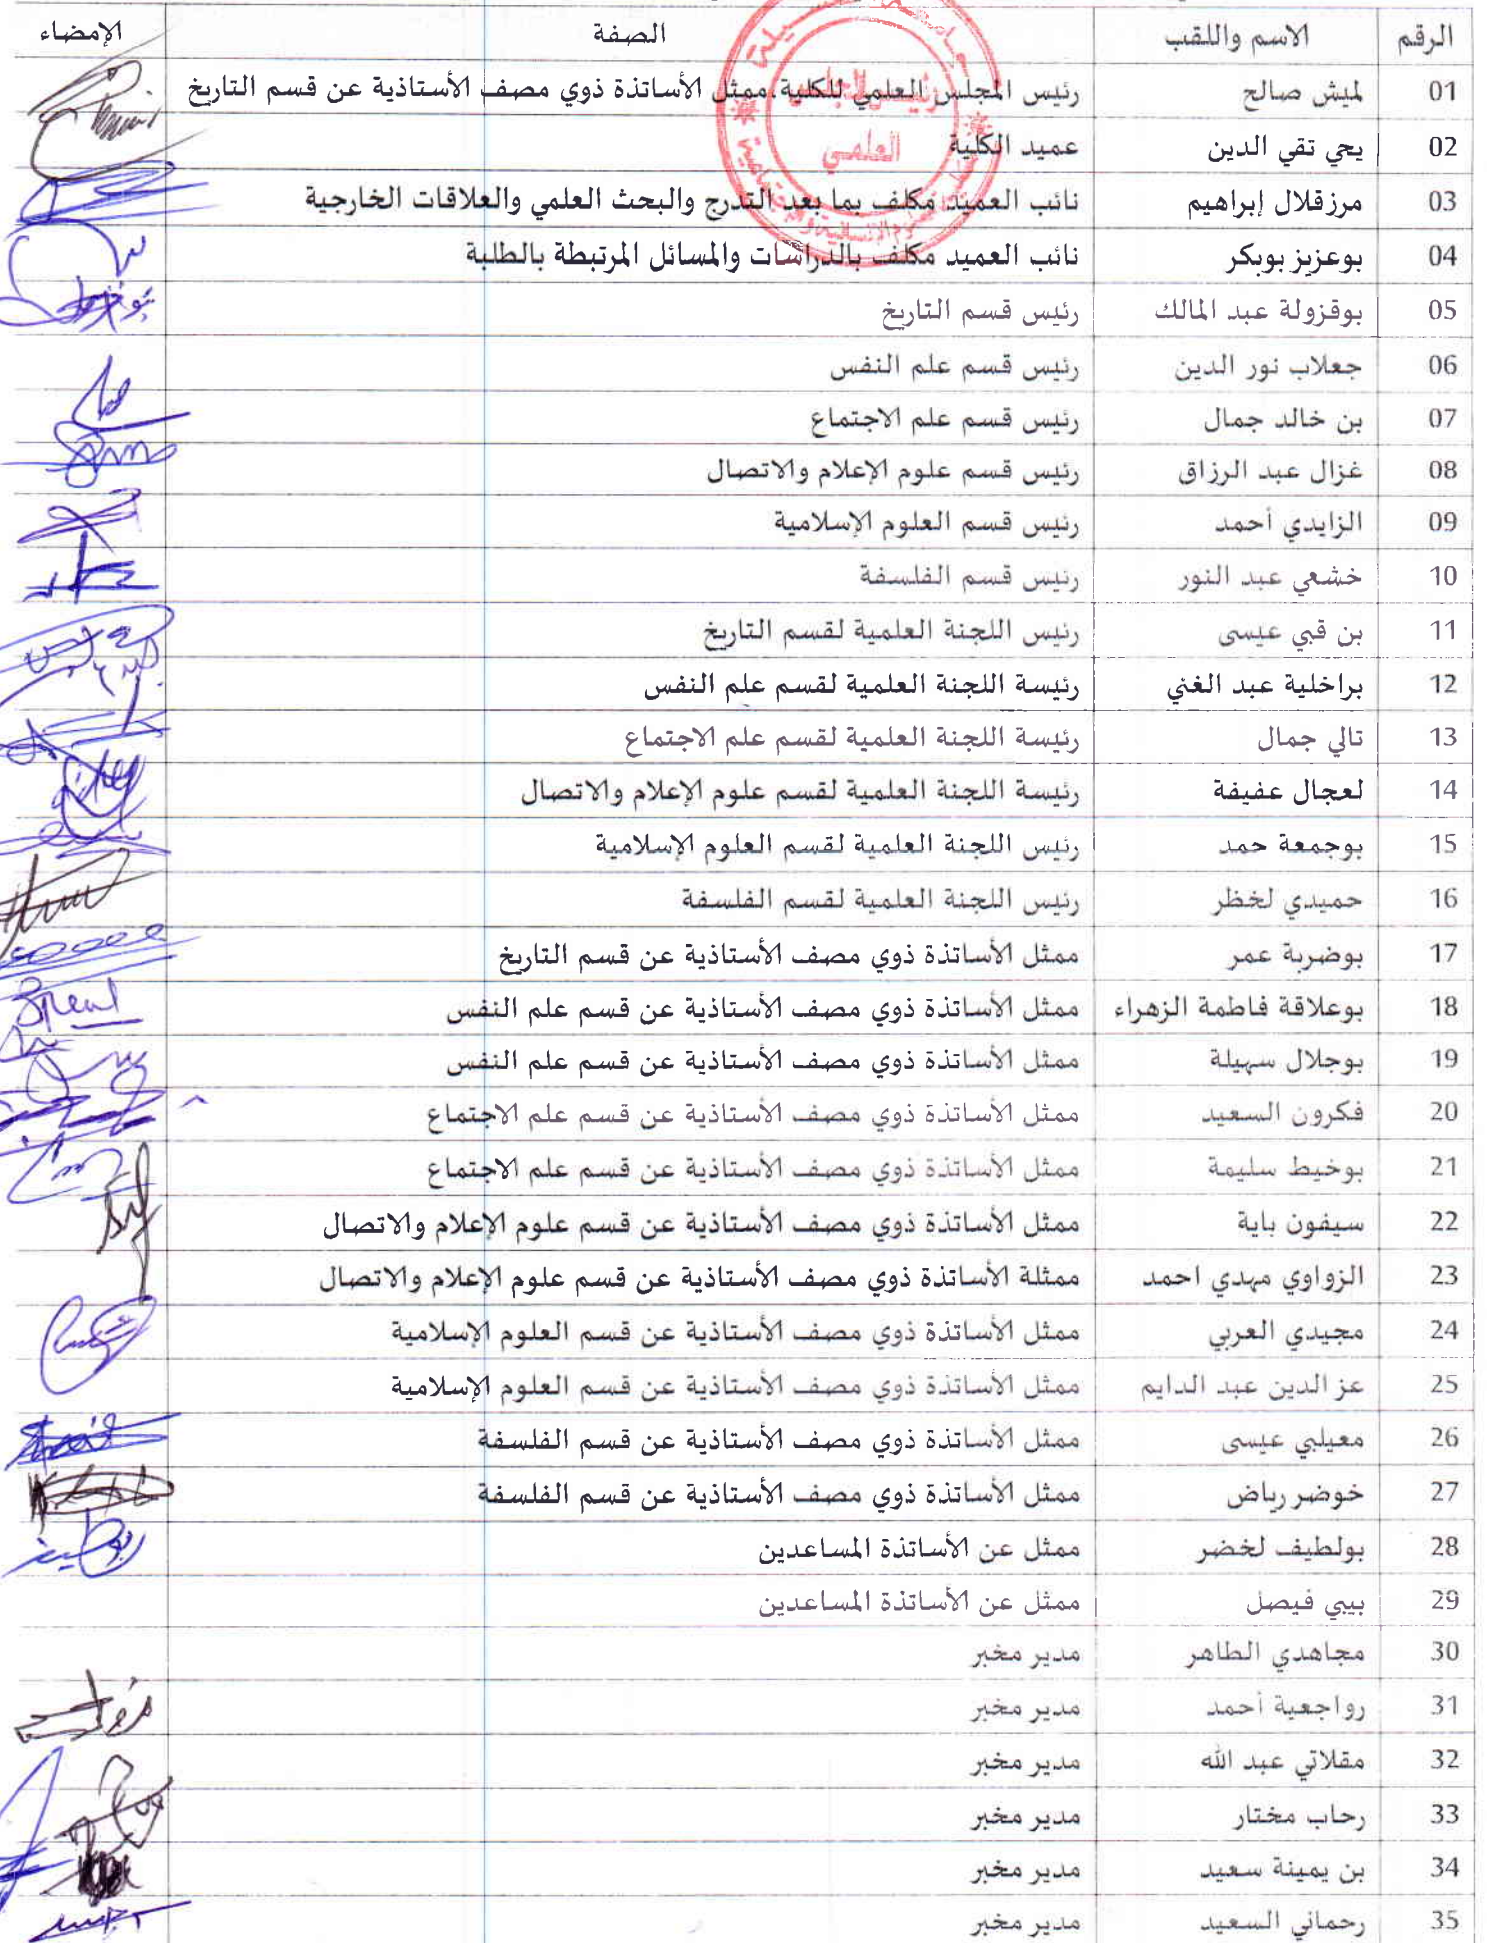 الرقم الاسم واللقب الصفة الإمضاء
01 لميش صالح رئيس المجلس العلمي للكلية.ممثل الأساتذة ذوي مصف الأستاذية عن قسم التاريخ
02 يحي تقي الدين عميد الكلية
03 مرزقلال إبراهيم نائب العميد مكلف بما بعد التدرج والبحث العلمي والعلاقات الخارجية
04 بوعزيز بوبكر نائب العميد مكلف بالدراسات والمسائل المرتبطة بالطلبة
05 بوقزولة عبد المالك رئيس قسم التاريخ
06 جعلاب نور الدين رئيس قسم علم النفس
07 بن خالد جمال رئيس قسم علم الاجتماع
08 غزال عبد الرزاق رئيس قسم علوم الإعلام والاتصال
09 الزايدي أحمد رئيس قسم العلوم الإسلامية
10 خشعي عبد النور رئيس قسم الفلسفة
11 بن قبي عيسى رئيس اللجنة العلمية لقسم التاريخ
12 براخلية عبد الغني رئيسة اللجنة العلمية لقسم علم النفس
13 تالي جمال رئيسة اللجنة العلمية لقسم علم الاجتماع
14 لعجال عفيفة رئيسة اللجنة العلمية لقسم علوم الإعلام والاتصال
15 بوجمعة حمد رئيس اللجنة العلمية لقسم العلوم الإسلامية
16 حميدي لخظر رئيس اللجنة العلمية لقسم الفلسفة
17 بوضربة عمر ممثل الأساتذة ذوي مصف الأستاذية عن قسم التاريخ
18 بوعلاقة فاطمة الزهراء ممثل الأساتذة ذوي مصف الأستاذية عن قسم علم النفس
19 بوجلال سهيلة ممثل الأساتذة ذوي مصف الأستاذية عن قسم علم النفس
20 فكرون السعيد ممثل الأساتذة ذوي مصف الأستاذية عن قسم علم الاجتماع
21 بوخيط سليمة ممثل الأساتذة ذوي مصف الأستاذية عن قسم علم الاجتماع
22 سيفون باية ممثل الأساتذة ذوي مصف الأستاذية عن قسم علوم الإعلام والاتصال
23 الزواوي مهدي احمد ممثلة الأساتذة ذوي مصف الأستاذية عن قسم علوم الإعلام والاتصال
24 مجيدي العربي ممثل الأساتذة ذوي مصف الأستاذية عن قسم العلوم الإسلامية
25 عز الدين عبد الدايم ممثل الأساتذة ذوي مصف الأستاذية عن قسم العلوم الإسلامية
26 معيلبي عيسى ممثل الأساتذة ذوي مصف الأستاذية عن قسم الفلسفة
27 خوضر رياض ممثل الأساتذة ذوي مصف الأستاذية عن قسم الفلسفة
28 بولطيف لخضر ممثل عن الأساتذة المساعدين
29 بيبي فيصل ممثل عن الأساتذة المساعدين
30 مجاهدي الطاهر مدير مخبر
31 رواجعية أحمد مدير مخبر
32 مقلاتي عبد الله مدير مخبر
33 رحاب مختار مدير مخبر
34 بن يمينة سعيد مدير مخبر
35 رحماني السعيد مدير مخبر